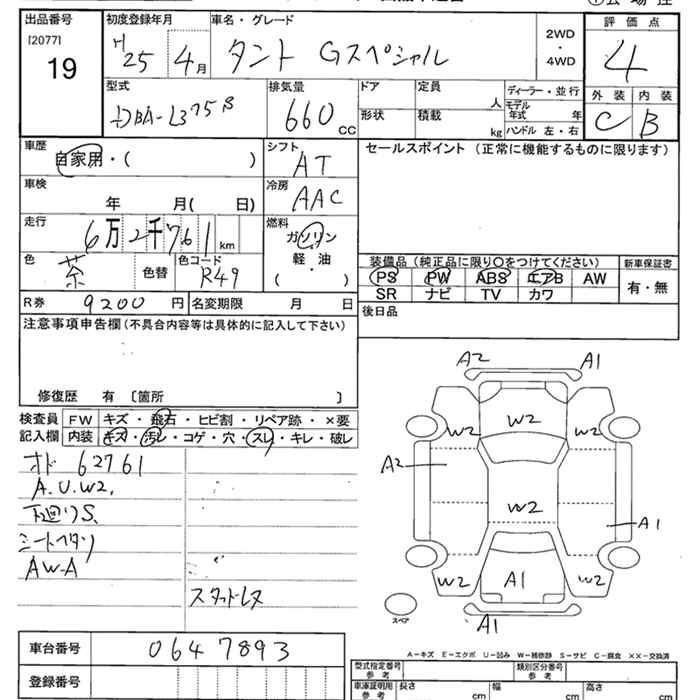 出品番号 初度登録年月 車名・グレード 評価点
[2077] H25 4月 タント Gスペシャル 2WD ・ 4WD 4
19
型式 排気量 ドア 定員 人 ディーラー・並行 外装 内装
DBA-L375S 660 CC 形状 積載 kg モデル年式 年 ハンドル 左・右 C B
車歴 シフト セールスポイント (正常に機能するものに限ります)
自家用・( ) AT
車検 冷房
年 月( 日) AAC
走行 燃料
6万2千761 km ガソリン
色 色コード 軽・油 装備品(純正品に限り〇をつけてください) 新車保証書
茶 色替 R49 ( ) PS PW ABS エアB AW 有・無
SR ナビ TV カワ
R券 9200円 名変期限 月 日 後日品
注意事項申告欄(不具合内容等は具体的に記入して下さい)
修復歴 有 〔箇所 〕
検査員 FW キズ・飛石・ヒビ割・リペア跡・×要
記入欄 内装 キズ・汚レ・コゲ・穴・スレ・キレ・破レ
オド 62761
A.U.W2.
下廻りS.
シートヘタリ
AW-A
スタッドレス
A2 A1
W2 W2 W2
A2
W2 A1
W2 A1 W2
スペア A1
A-キズ E-エクボ U-凹み W-補修跡 S-サビ C-腐食 ××-交換済
車台番号 0647893 型式指定番号 参考 類別区分番号 参考
登録番号 車庫証明用 参考 長さ cm 幅 cm 高さ cm